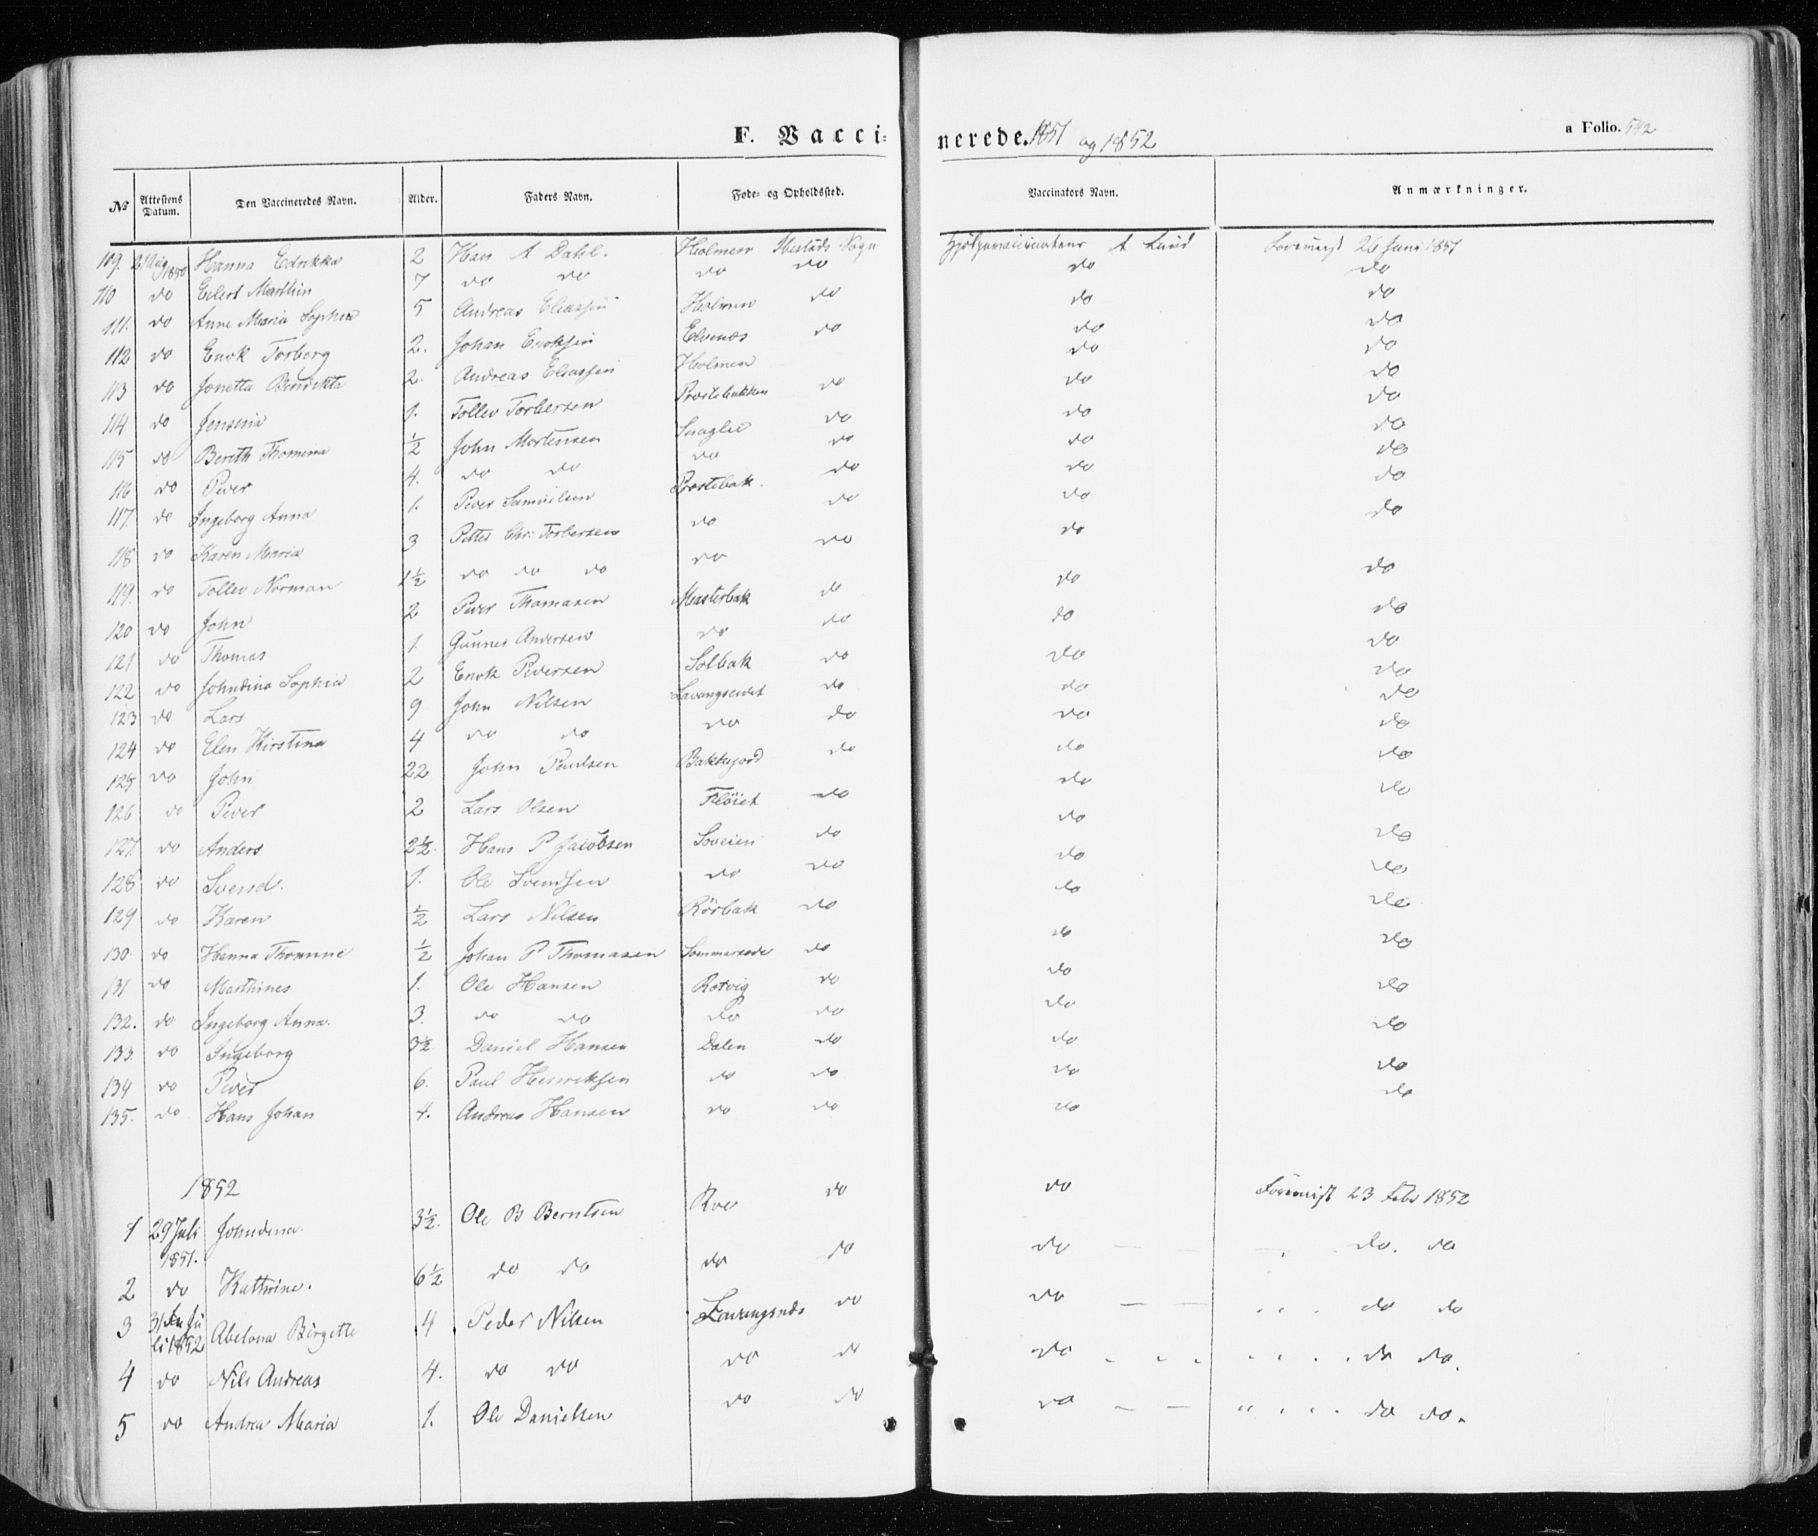 F. Vaccinerede. 1851 og 1852
a Folio. 542
№ Attestens Datum. Den Vaccineredes Navn. Alder. Faders Navn. Føde- og Opholdssted. Vaccinators Navn. Anmærkninger.
109. 1850 Hanna Edrikka 2 Hans A Dahl. Holmen Ibestads Sogn A Lund Forevist 26 Juni 1851
110 do Eilert Marthin 7 do do do do do do
111. do Anne Maria Sophia 5 Andreas Eliassen Holmen do do do
112 do Enok Torberg 2. Johan Enoksen Elvenæs do do do
113 do Jonetta Benrikta 2. Andreas Eliassen Holmen do do
114 do Jensenia 1. Tollev Torbersen Prostebakken do do do
115 do Bereth Thomina ½ John Mortensen do do do
116 do Peder 4. do do do do do do
117. do Ingeborg Anna 1. Peder Samuelsen Prostebak. do do do
118 do Karen Maria 3 Petter Chr: Torbersen do do do do
119. do Tollev Norman 1½ do do do do do do do
120 do John 2 Peder Thomasen Mesterbak do do do
121 do Thomas 1. Gunnes Andersen do do do do
122 do Johndina Sophia 2 Enok Pedersen Solbak do do do
123 do Lars 9 John Nilsen Lavangseidet do do do
124 do Elen Kirstina 4 do do do do do do
125 do John 22 John Paulsen Bakkejord do do do
126 do Peder 2 Lars Olsen Fløiet do do do
127. do Anders 2½. Hans P Jacobsen Soveien do do do
128 do Svend. 1. Ole Svendsen do do do do
129 do Karen ½ Lars Nilsen Rørbak do do do
130 do Hanna Thomine ½ Johan P Thomasen Sommersæde do do do
131 do Marthines 1. Ole Hansen Rotvig do do do
132. do Ingeborg Anna. 3. do do do do do do
133. do Ingeborg 3½ Daniel Hansen Dalen do do do
134 do Peder 6. Paul Henriksen do do do do
135. do Hans Johan 4. Andreas Hansen do do do do
1852
1 29 Juli 1851. Johndina. 3½. Ole B Berntsen Roe do do Forevist 23 Febr 1852
2 do Kathrine. 6½ do do do do do do. do
3 1852 Abelona Birgitte 4 Peder Nilsen do do do do
4 do Nils Andreas 4. do do do do do do do.
5 do Andrea Maria 1. Ole Danielsen do do do do do.